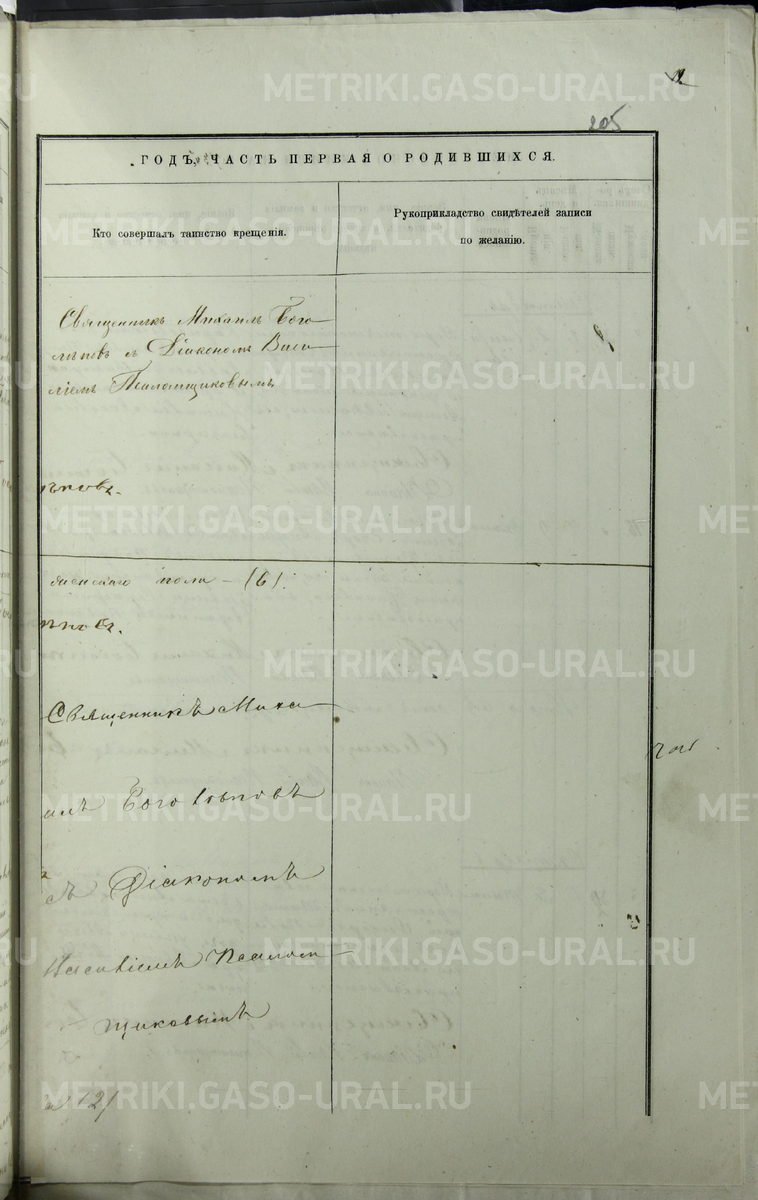 205
ГОДЪ, ЧАСТЬ ПЕРВАЯ О РОДИВШИХСЯ.
Кто совершалъ таинство крещенія.
Рукоприкладство свидѣтелей записи
по желанію.
Священникъ Михаилъ Бого
лѣповъ съ Діакономъ Васи
ліемъ Псаломщиковымъ
женскаго пола – (6).
Священникъ Миха
илъ Боголѣповъ
съ Діакономъ
Василіемъ Псалом
щиковымъ
METRIKI.GASO-URAL.RU